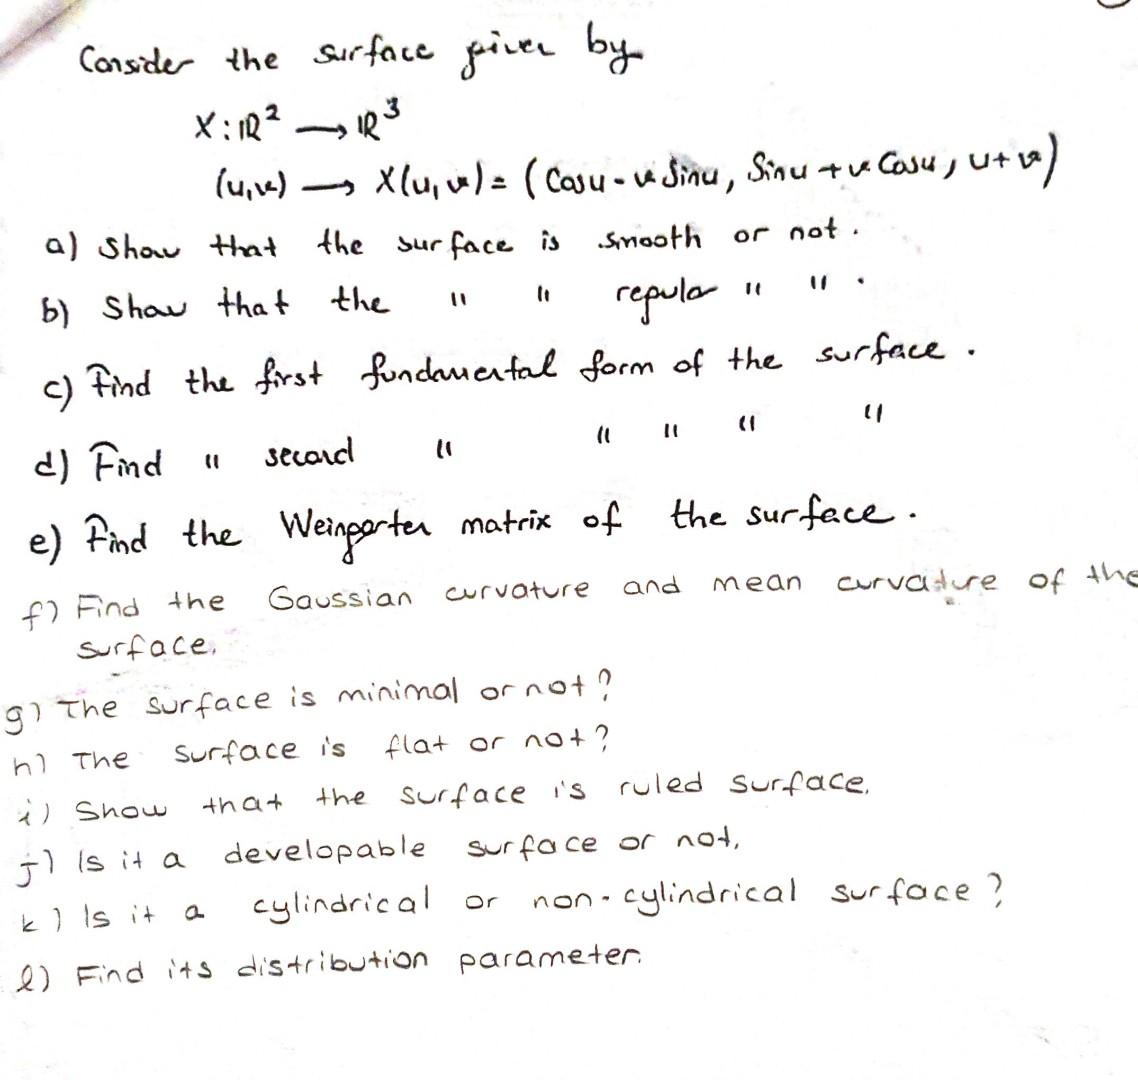 Consider the surface given by
X : ℝ² → ℝ³
(u,v) → X(u,v) = (Cosu - v Sinu, Sinu + v Cosu, u + v)
a) Show that the surface is smooth or not.
b) Show that the " " regular " " .
c) Find the first fundamental form of the surface.
d) Find " second " " " " "
e) Find the Weingarten matrix of the surface.
f) Find the Gaussian curvature and mean curvature of the
surface.
g) The surface is minimal or not?
h) The surface is flat or not?
i) Show that the surface is ruled surface.
j) Is it a developable surface or not,
k) Is it a cylindrical or non-cylindrical surface?
l) Find its distribution parameter.